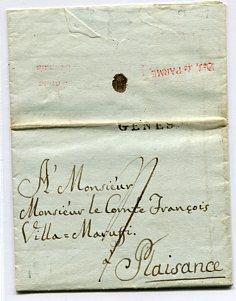 DUC. DE PARME
GENES
A' Monsieur
Monsieur le Comte François
Villa=Maruffi.
Plaisance